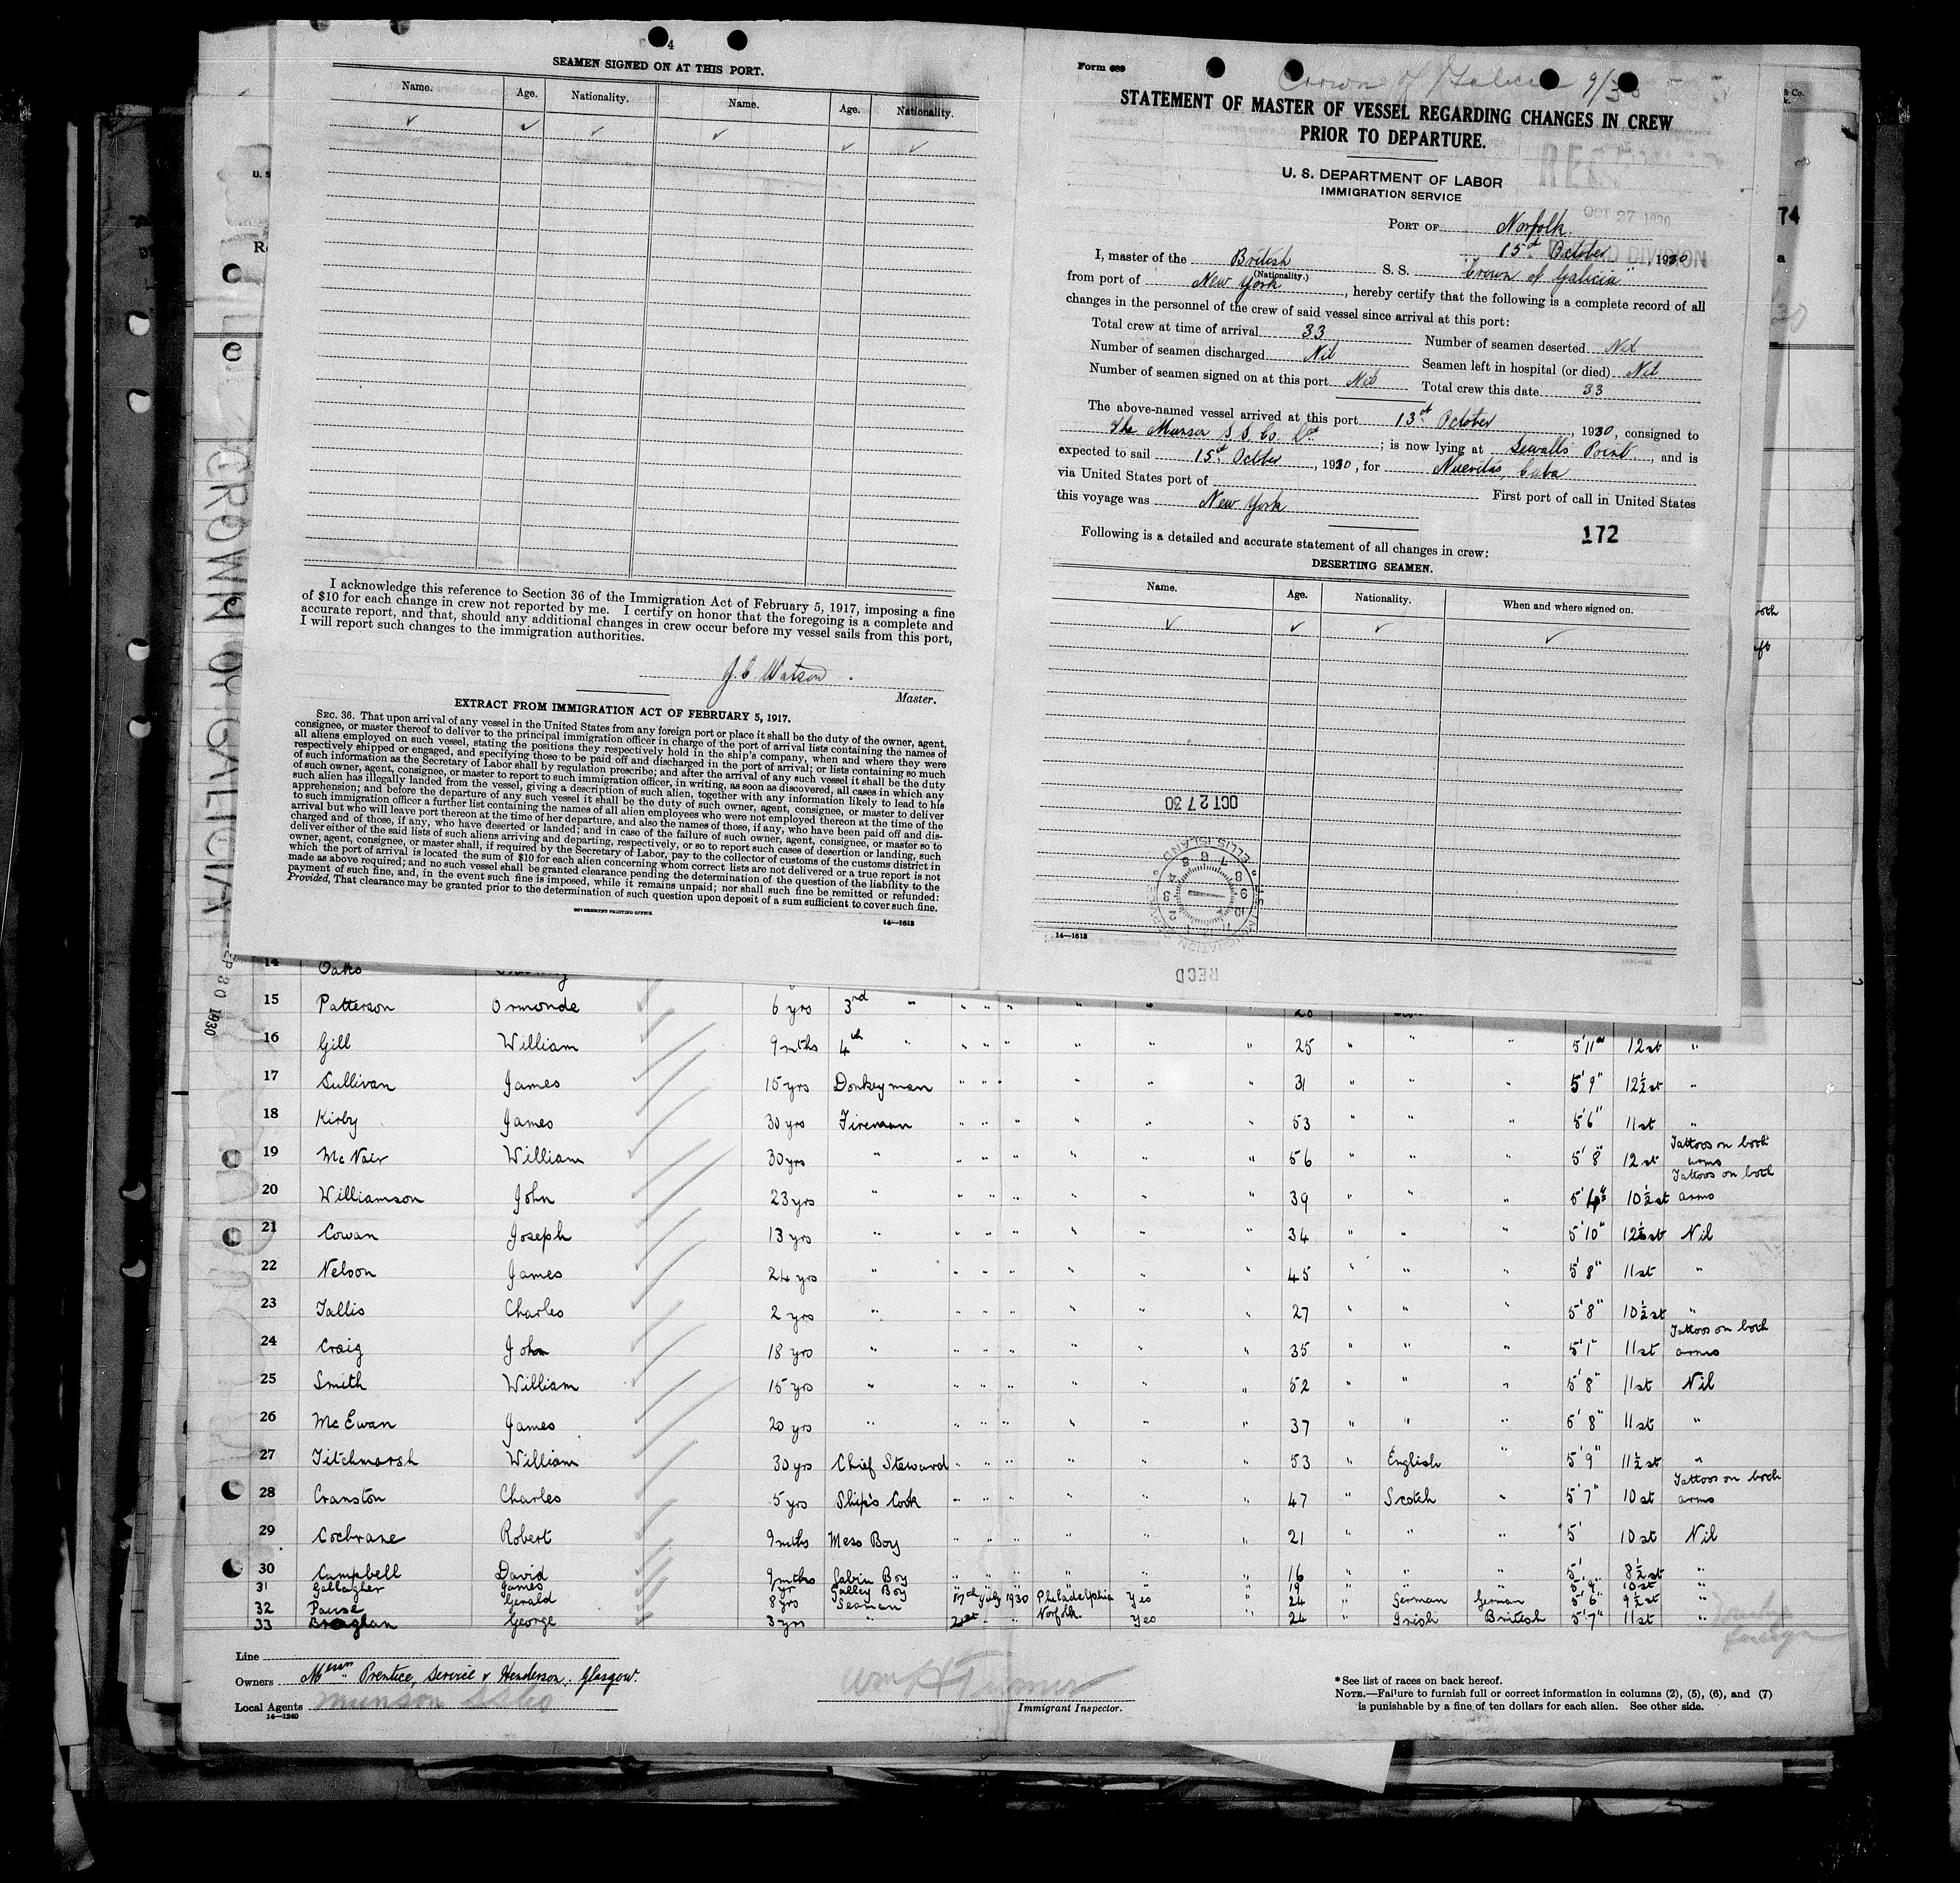 4
SEAMEN SIGNED ON AT THIS PORT.
Name. Age. Nationality. Name. Age. Nationality.
I acknowledge this reference to Section 36 of the Immigration Act of February 5, 1917, imposing a fine
of $10 for each change in crew not reported by me. I certify on honor that the foregoing is a complete and
accurate report, and that, should any additional changes in crew occur before my vessel sails from this port,
I will report such changes to the immigration authorities.
J. C. Watson.
Master.
EXTRACT FROM IMMIGRATION ACT OF FEBRUARY 5, 1917.
SEC. 36. That upon arrival of any vessel in the United States from any foreign port or place it shall be the duty of the owner, agent,
consignee, or master thereof to deliver to the principal immigration officer in charge of the port of arrival lists containing the names of
all aliens employed on such vessel, stating the positions they respectively hold in the ship's company, when and where they were
respectively shipped or engaged, and specifying those to be paid off and discharged in the port of arrival; or lists containing so much
of such information as the Secretary of Labor shall by regulation prescribe; and after the arrival of any such vessel it shall be the duty
of such owner, agent, consignee, or master to report to such immigration officer, in writing, as soon as discovered, all cases in which any
such alien has illegally landed from the vessel, giving a description of such alien, together with any information likely to lead to his
apprehension; and before the departure of any such vessel it shall be the duty of such owner, agent, consignee, or master to deliver
to such immigration officer a further list containing the names of all alien employees who were not employed thereon at the time of the
arrival but who will leave port thereon at the time of her departure, and also the names of those, if any, who have been paid off and dis-
charged and of those, if any, who have deserted or landed; and in case of the failure of such owner, agent, consignee, or master so to
deliver either of the said lists of such aliens arriving and departing, respectively, or so to report such cases of desertion or landing, such
owner, agent, consignee, or master shall, if required by the Secretary of Labor, pay to the collector of customs of the customs district in
which the port of arrival is located the sum of $10 for each alien concerning whom correct lists are not delivered or a true report is not
made as above required; and no such vessel shall be granted clearance pending the determination of the question of the liability to the
payment of such fine, and, in the event such fine is imposed, while it remains unpaid; nor shall such fine be remitted or refunded:
Provided, That clearance may be granted prior to the determination of such question upon deposit of a sum sufficient to cover such fine.
GOVERNMENT PRINTING OFFICE
14—1613
Form 689
Crown of Galicia 9/30
STATEMENT OF MASTER OF VESSEL REGARDING CHANGES IN CREW
PRIOR TO DEPARTURE.
U. S. DEPARTMENT OF LABOR
IMMIGRATION SERVICE
OCT 27 1930
PORT OF Norfolk.
15th October, 1930
I, master of the British S. S. "Crown of Galicia"
(Nationality.)
from port of New York, hereby certify that the following is a complete record of all
changes in the personnel of the crew of said vessel since arrival at this port:
Total crew at time of arrival 33 Number of seamen deserted Nil
Number of seamen discharged Nil Seamen left in hospital (or died) Nil
Number of seamen signed on at this port Nil Total crew this date 33
The above-named vessel arrived at this port 13th October, 1930, consigned to
The Munson S S Co. Ltd; is now lying at Sewalls Point, and is
expected to sail 15th October, 1930, for Nuevitas, Cuba
via United States port of First port of call in United States
this voyage was New York
172
Following is a detailed and accurate statement of all changes in crew:
DESERTING SEAMEN.
Name. Age. Nationality. When and where signed on.
OCT 27 30
U.S. IMMIGRATION SERVICE ELLIS ISLAND
RECD
14—1613
74
CROWN OF GALICIA
SEP 30 1930
14 Oaks
15 Patterson Ormonde 6 yrs 3rd "
16 Gill William 9 mths 4th " 25 " " " 5'11" 12 st "
17 Sullivan James 15 yrs Donkeyman 31 " " " 5'9" 12½ st "
18 Kirby James 30 yrs Fireman 53 " " " 5'6" 11 st "
19 McNair William 30 yrs " 56 " " " 5'8" 12 st Tattoos on both arms
20 Williamson John 23 yrs " 39 " " " 5'4" 10½ st Tattoos on both arms
21 Cowan Joseph 13 yrs " 34 " " " 5'10" 12½ st Nil
22 Nelson James 24 yrs " 45 " " " 5'8" 11 st "
23 Tallis Charles 2 yrs " 27 " " " 5'8" 10½ st "
24 Craig John 18 yrs " 35 " " " 5'1" 11 st Tattoos on both arms
25 Smith William 15 yrs " 52 " " " 5'8" 11 st Nil
26 McEwan James 20 yrs " 37 " " " 5'8" 11 st "
27 Titchmarsh William 30 yrs Chief Steward 53 " English " 5'9" 11½ st "
28 Cranston Charles 5 yrs Ship's Cook 47 " Scotch " 5'7" 10 st Tattoos on both arms
29 Cochrane Robert 9 mths Mess Boy 21 " " " 5' 10 st Nil
30 Campbell David 9 mths Cabin Boy 16 " " " 5' 8½ st "
31 Gallagher James yr Galley Boy 19 " " " 5'9" 10 st "
32 Pause Gerald 8 yrs Seaman 17th July 1930 Philadelphia Yes " 24 " German German 5'6" 9½ st "
33 George 3 yrs " 21st " " Norfolk Yes " 24 " Irish British 5'7" 11 st "
Line
Owners Messrs Prentice, Service & Henderson. Glasgow.
Local Agents Munson SS Co
14—1240
Wm H Turner
Immigrant Inspector.
*See list of races on back hereof.
NOTE.—Failure to furnish full or correct information in columns (2), (5), (6), and (7)
is punishable by a fine of ten dollars for each alien. See other side.